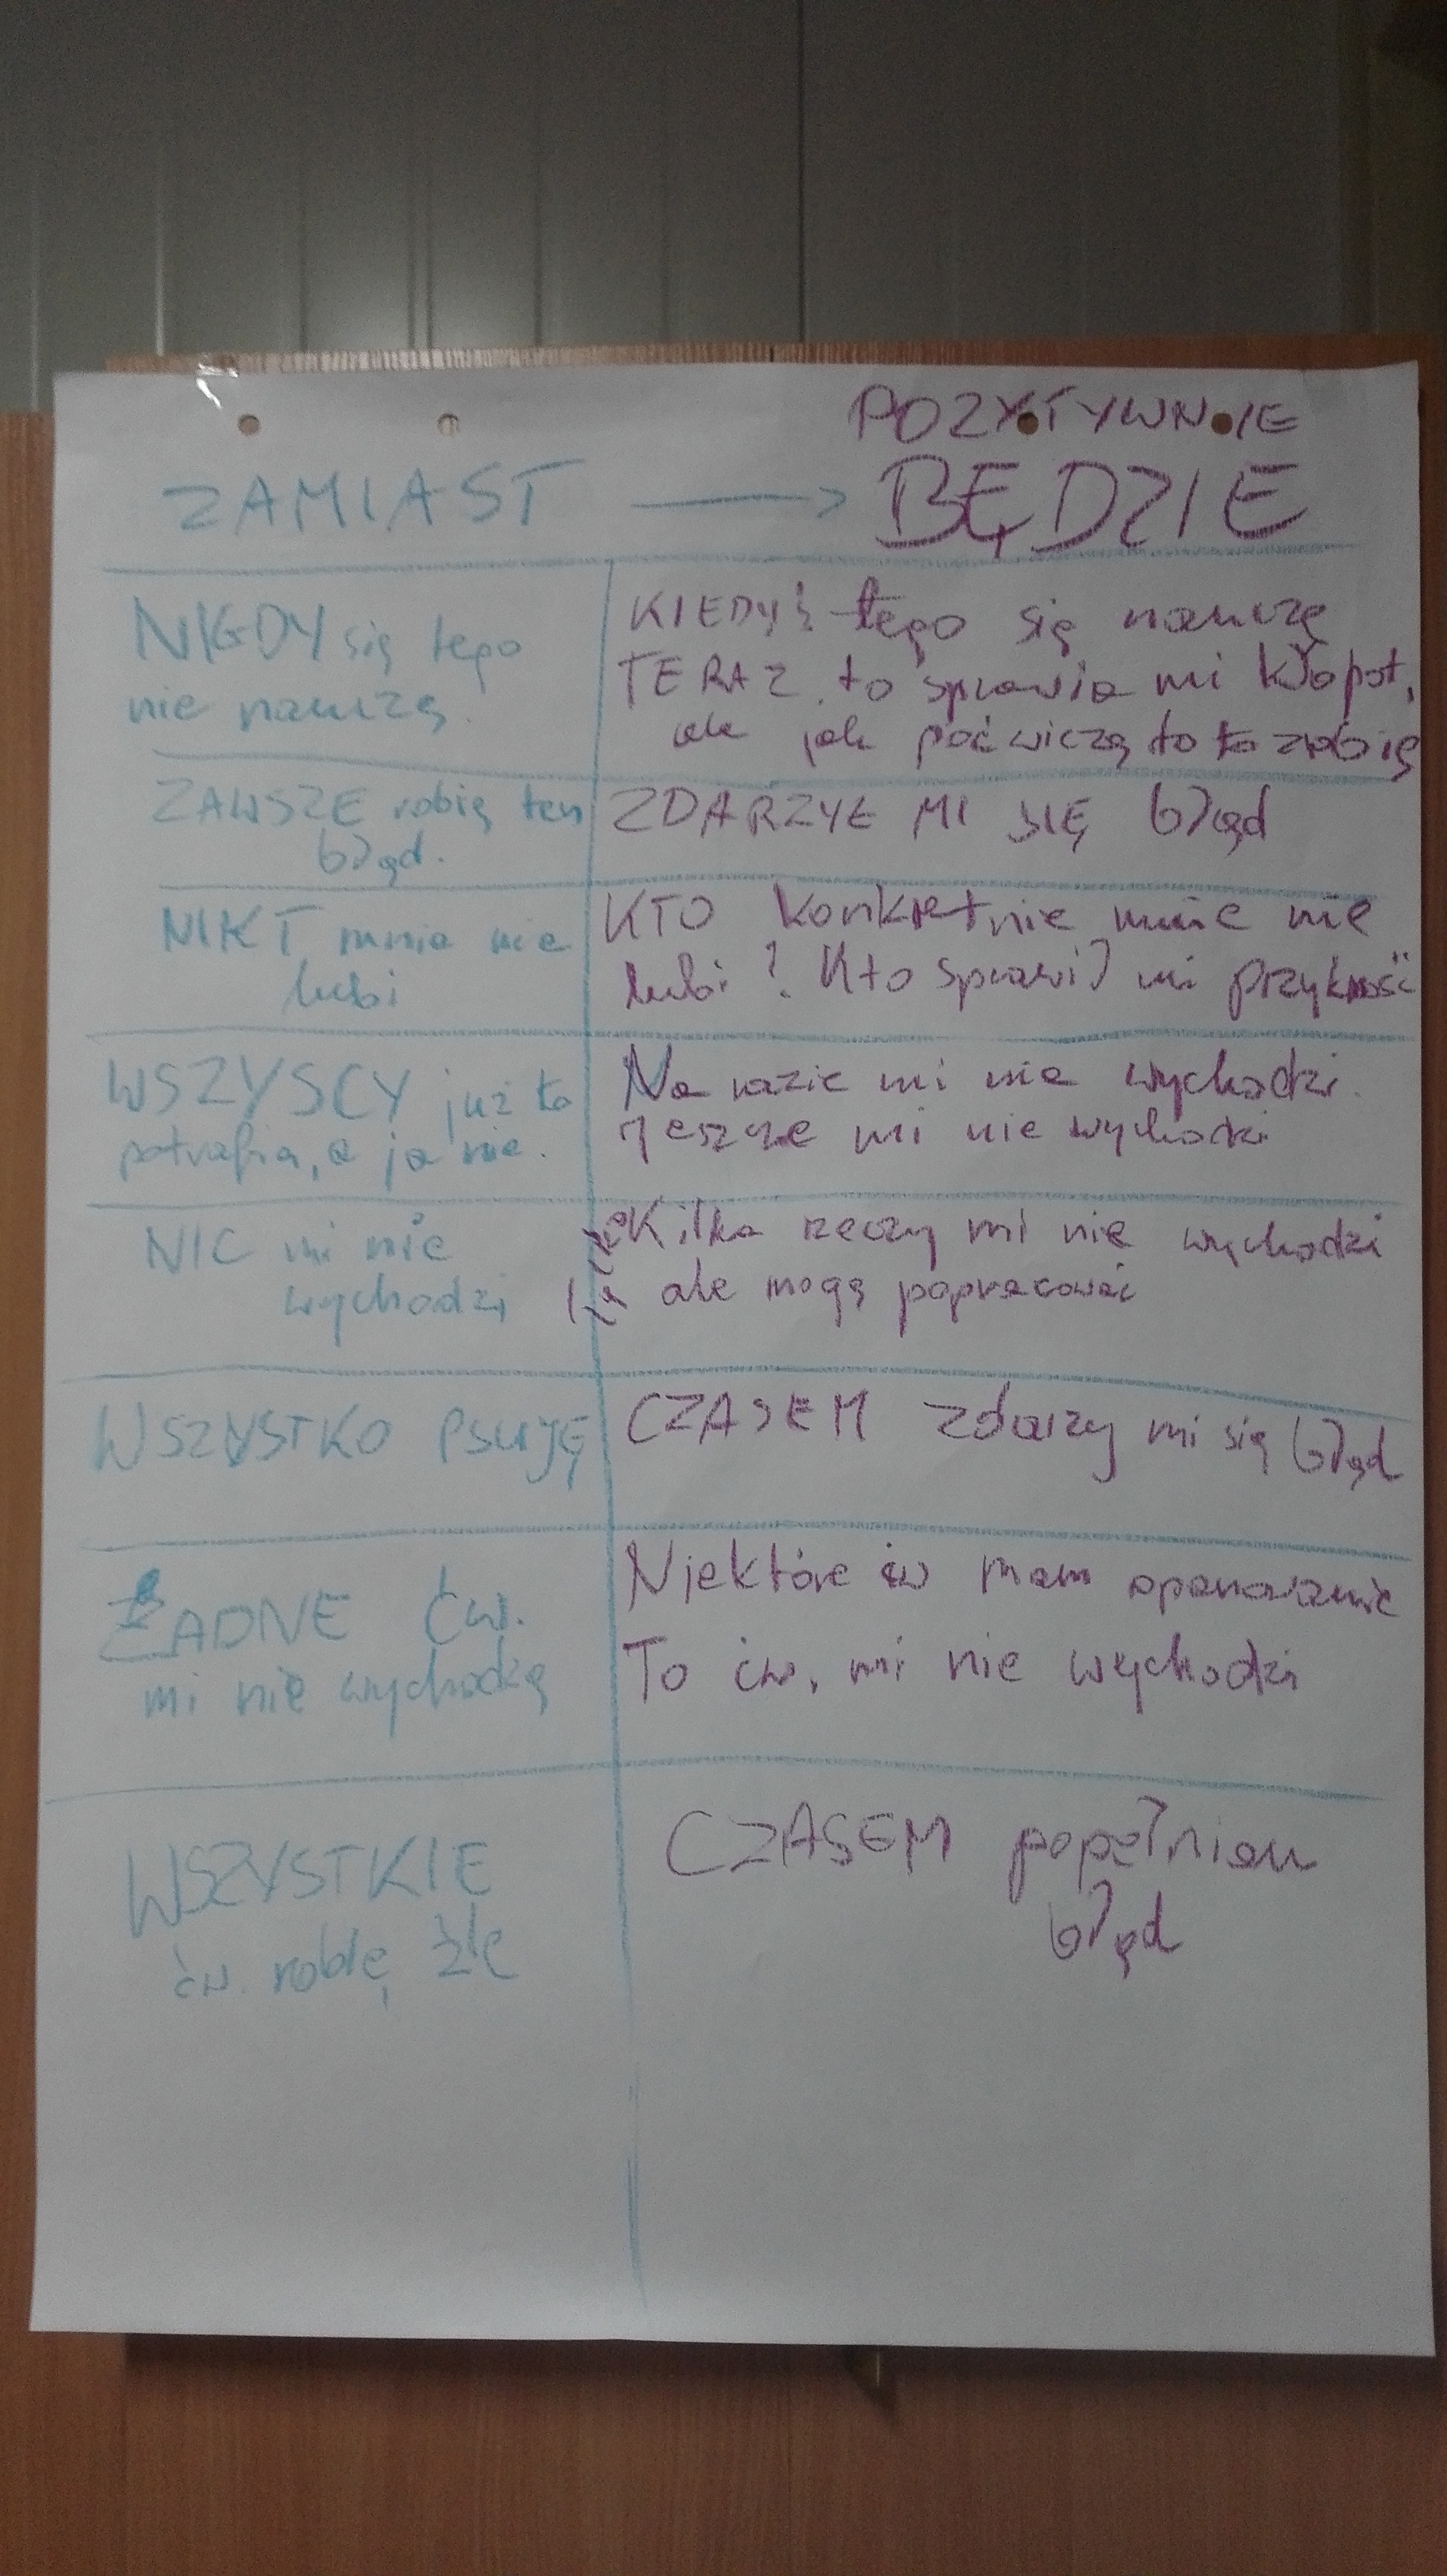 POZYTYWNIE
ZAMIAST → BĘDZIE
NIGDY się tego
nie nauczę.
KIEDYŚ tego się nauczę
TERAZ to sprawia mi kłopot,
ale jak poćwiczę to to zrobię
ZAWSZE robię ten
błąd.
ZDARZYŁ MI SIĘ błąd
NIKT mnie nie
lubi
KTO konkretnie mnie nie
lubi? Kto sprawił mi przykrość
WSZYSCY już to
potrafią, a ja nie.
Na razie mi nie wychodzi.
Jeszcze mi nie wychodzi
NIC mi nie
wychodzi
Kilka rzeczy mi nie wychodzi
ale mogę popracować
WSZYSTKO PSUJĘ
CZASEM zdarzy mi się błąd
ŻADNE ćw.
mi nie wychodzą
Niektóre ćw mam opanowanie
To ćw. mi nie wychodzi
WSZYSTKIE
ćw. robię źle
CZASEM popełniam
błąd